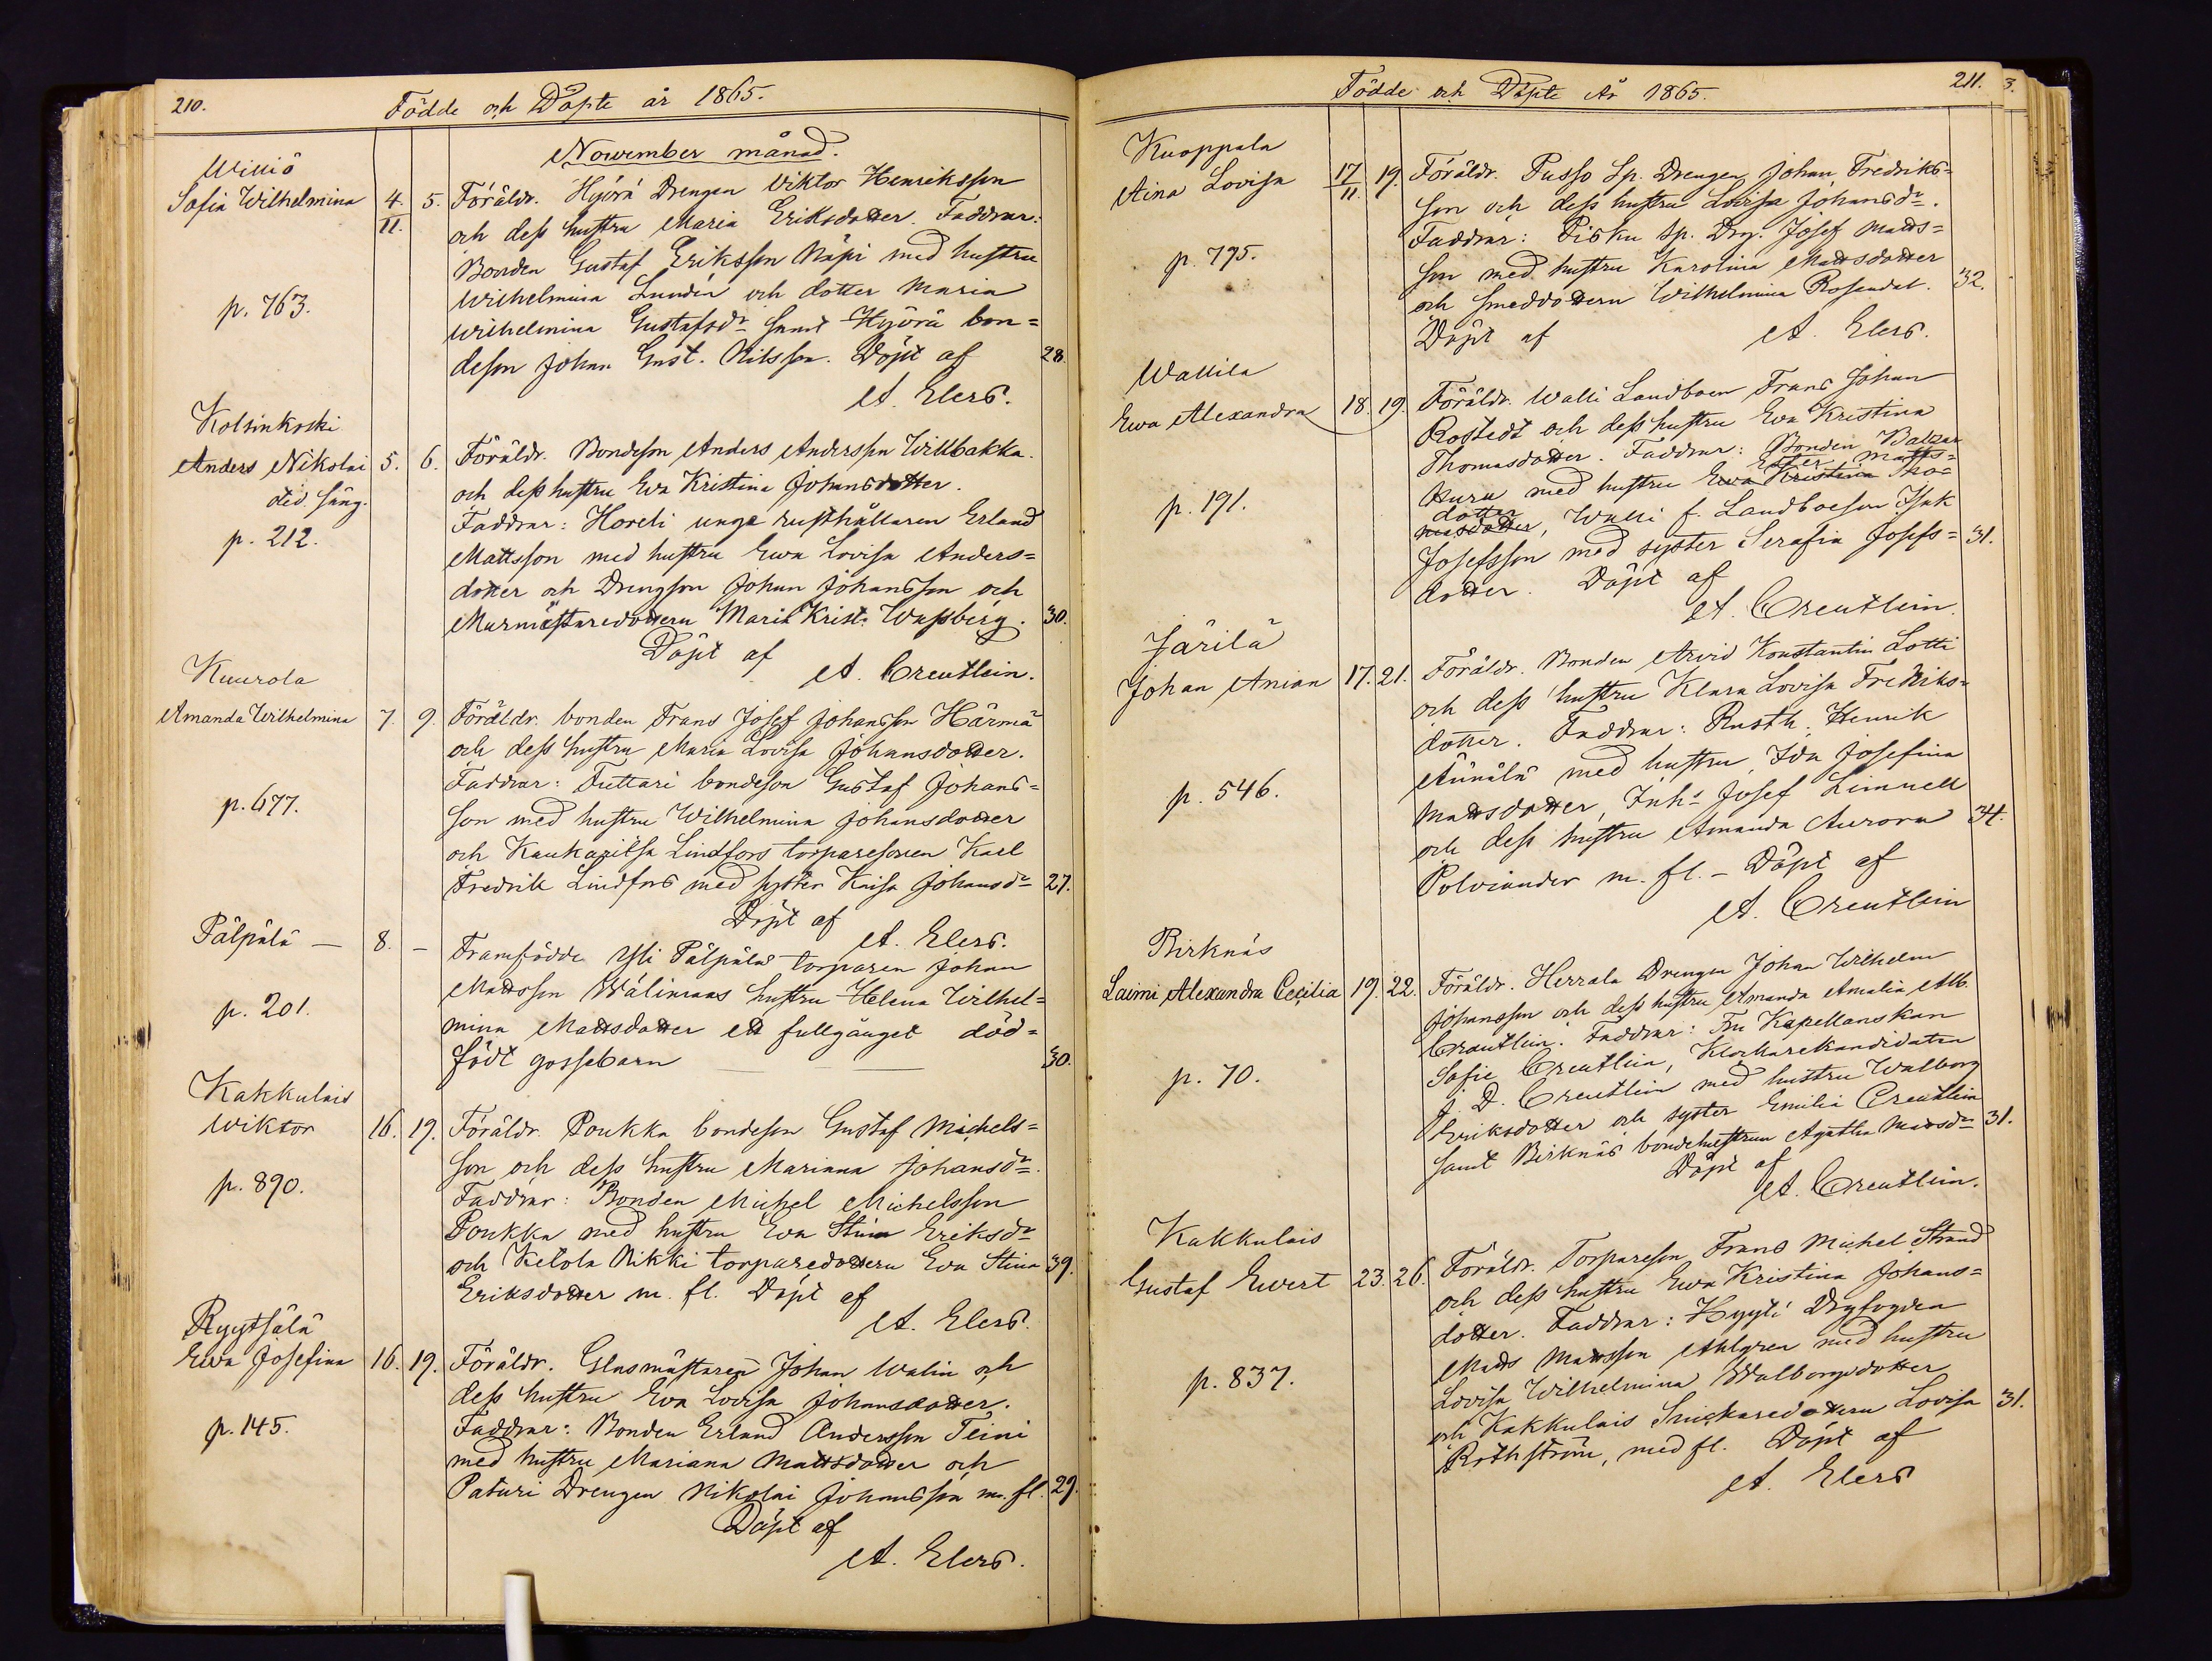 210.
Födde och Döpte år 1865.
November månad.
Williö
Sofia Wilhelmina 4. 5. Föräldr. Hyörä Drengen Viktor Henriksson
11. och dess hustru Maria Eriksdotter. Faddrar:
Bonden Gustaf Eriksson Näpi med hustru
Wilhelmina Lundén och dotter Maria
p. 763.
Wilhelmina Gustafsdr samt Hyörä bon=
deson Johan Gust. Nilsson. Döpt af 28.
A. Elers.
Kolsinkoski
Anders Nikolai 5. 6. Föräldr. Bondeson Anders Andersson Willbakka.
och dess hustru Eva Kristina Johansdotter.
p. 212.
Faddrar: Horeli unge rusthållaren Erland
Mattsson med hustru Ewa Lovisa Anders=
dotter och Drengson Johan Johansson och
Murmästaredottern Maria Krist. Wassberg. 30.
Döpt af
A. Creutlein.
Kuurola
Amanda Wilhelmina 7. 9. Föräldr. bonden Frans Josef Johansson Härmä
och dess hustru Maria Lovisa Johansdotter.
Faddrar: Tuttari bondeson Gustaf Johans=
p. 677.
son med hustru Wilhelmina Johansdotter
och Kaukaritsa Lindfors torparesonen Karl
Fredrik Lindfors med syster Kaisa Johansdr 27.
Döpt af
A. Elers.
Pälpälä — 8. — Framfödde Yli Pälpälä torparen Johan
Mattsson Wälimaas hustru Helena Wilhel=
p. 201.
mina Mattsdotter ett fullgånget död=
födt gossebarn 30.
Kakkulais
Wiktor 16. 19. Föräldr. Poukka bondeson Gustaf Michels=
son och dess hustru Marianna Johansdr.
p. 890.
Faddrar: Bonden Michel Michelsson
Poukka med hustru Eva Stina Eriksdr
och Ketola Nikki torparedottern Eva Stina 39.
Eriksdotter m. fl. Döpt af
A. Elers.
Ryytsälä
Ewa Josefina 16. 19. Föräldr. Glasmästaren Johan Walin och
dess hustru Eva Lovisa Johansdotter.
p. 145.
Faddrar: Bonden Erland Andersson Teini
med hustru Mariana Mattsdotter och
Paturi Drengen Nikolai Johansson m. fl. 29.
Döpt af
A. Elers.
211.
3.
Födde och Döpte År 1865.
Kuoppala
Aina Lovisa 17 19. Föräldr. Pusso Sp. Drengen Johan Fredriks=
11. son och dess hustru Lovisa Johansdr.
p. 795.
Faddrar: Pisku Sp. Drg. Josef Matts=
son med hustru Karolina Mattsdotter
och Smeddottern Wilhelmina Rosendal. 32.
Döpt af A. Elers.
Wallila
Ewa Alexandra 18. 19. Föräldr. Walli Landboen Frans Johan
Rostedt och dess hustru Eva Kristina
Thomasdotter. Faddrar: Bonden Balzar
Ester Matts=
p. 191.
med hustru Ewa Kristina Tho=
dotter
masdotter, Walli f. Landboeson Isak
Josefsson med syster Serafia Josefs= 31.
dotter. Döpt af
A. Creutlein.
Järilä
Johan Anian 17. 21. Föräldr. Bonden Arvid Konstantin Lotti
och dess hustru Klara Lovisa Fredriks=
dotter. Faddrar: Rusth. Henrik
p. 546.
Äünälä med hustru, Ida Josefina
Mattsdotter, Inhs Josef Limnell
och dess hustru Amanda Aurora 34.
Polviander m. fl. – Döpt af
A. Creutlein
Birknäs
Laimi Alexandra Cecilia 19. 22. Föräldr. Herrala Drengen Johan Wilhelm
Johansson och dess hustru Amanda Amalia Alb.
Creutlein. Faddrar: Fru Kapellanskan
p. 70.
Sofie Creutlein, Klockarekandidaten
J. D. Creutlein med hustru Walborg
Eriksdotter och syster Emilia Creutlein
samt Birknäs bondehustrun Agatha Mattsdr 31.
Döpt af
A. Creutlein.
Kakkulais
Gustaf Evert 23. 26. Föräldr. Torpareson Frans Michel Strand
och dess hustru Ewa Kristina Johans=
dotter. Faddrar: Hyyti Drgfogden
Matts Mattsson Ahlgren med hustru
p. 837.
Lovisa Wilhelmina Walborgsdotter
och Kakkulais Snickaredottern Lovisa 31.
Rothström, med fl. Döpt af
A. Elers